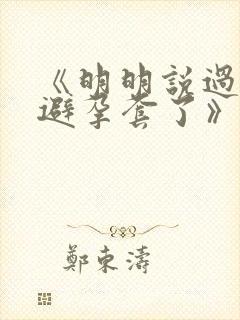 《明明說過
避孕套了》
鄭東濤